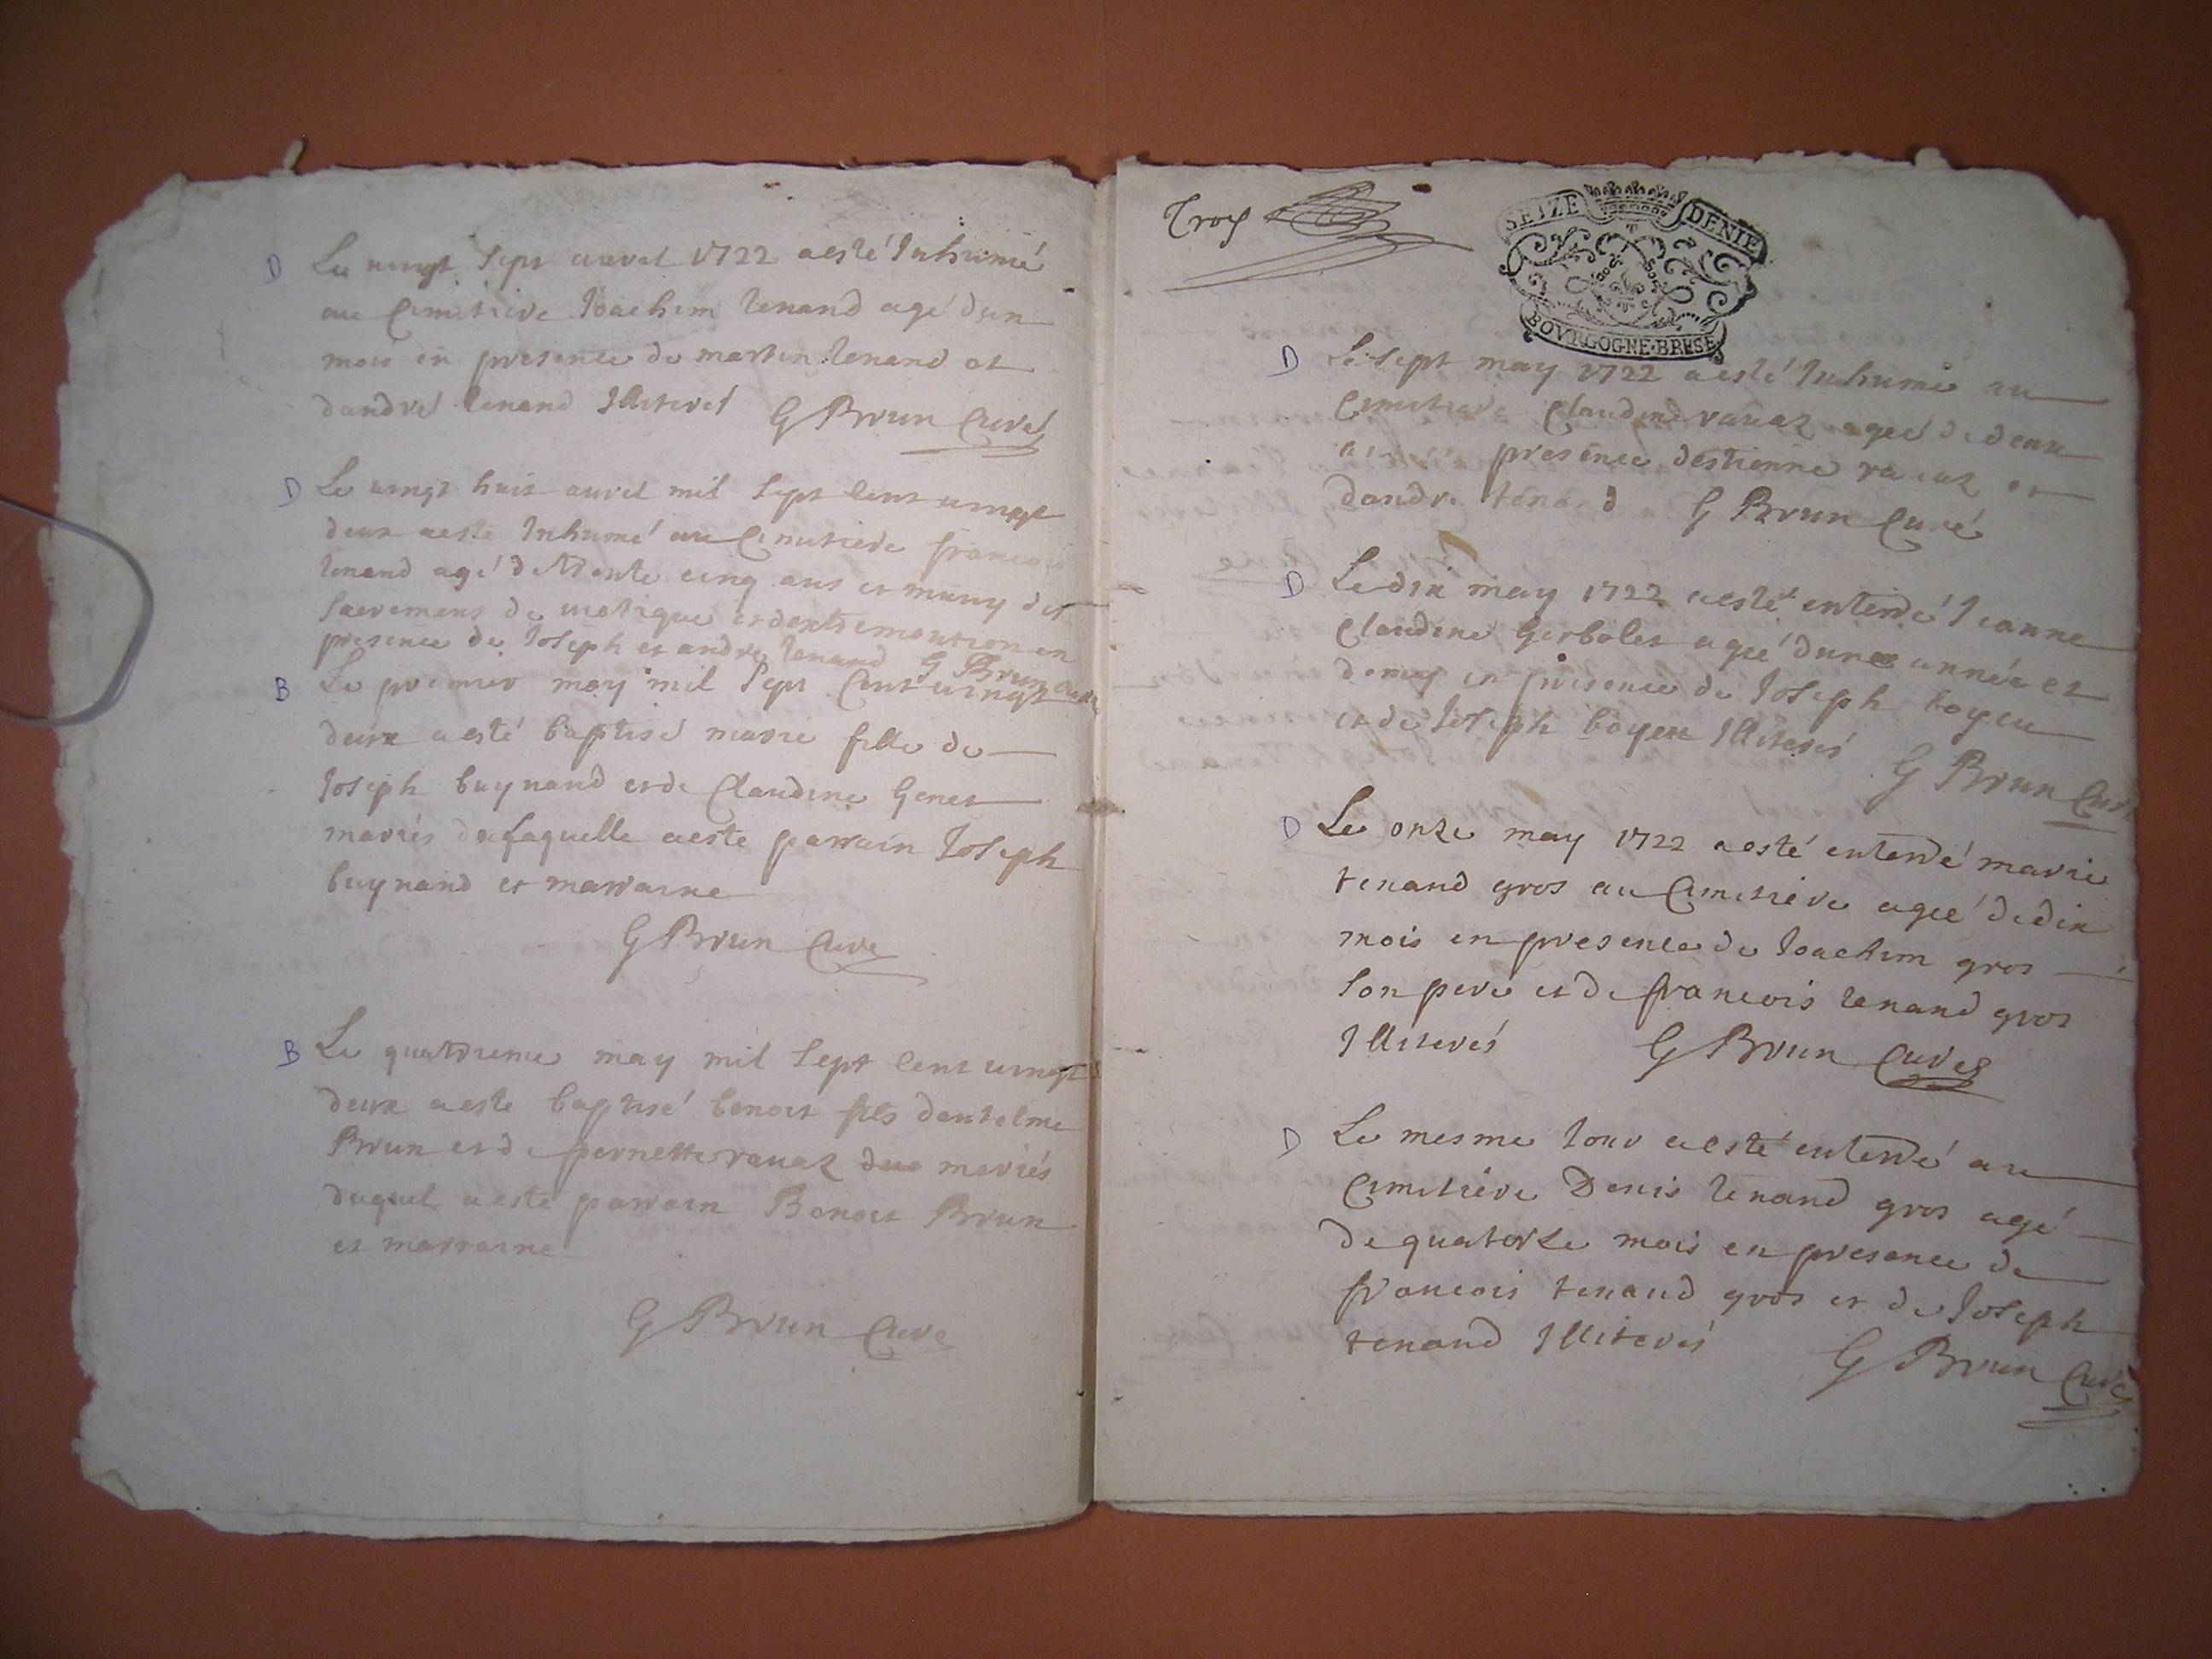 D Le vingt sept avril 1722 a esté Inhumé
au Cimetiere Joachim tenand agé dun
mois en presence de martin tenand et
dandré tenand Illiterés G Brun Curé
D Le vingt huit avril mil sept cent vingt
deux a esté Inhumé au Cimetiere francois
tenand agé de trente cinq ans et muny des
sacremens de viatique et dextremonction en
presence de Joseph et andre tenand G Brun Curé
B Le premier may mil sept Cent vingt
deux a esté baptisé marie fille de
Joseph buynand et de Claudine Genet
mariés de laquelle a esté parrain Joseph
buynand et marraine
G Brun Curé
B Le quatrieme may mil sept cent vingt
deux a esté baptisé benoit fils dantelme
Brun et de pernette ravaz mariés
duquel a esté parrain Benoit Brun
et marraine
G Brun Curé
Troy
SEIZE DENIE
BOVRGOGNE·BRESE
D Le sept may 1722 a esté Inhumé au
Cimetiere Claudine ravaz agée de deux
presence destienne ravaz et
dandré tenand G Brun Curé
D Le dix may 1722 a esté enterré Jeanne
Claudine Gerbolet agée dune année et
demy en presence de Joseph boyeu
et de Joseph boyeu Illiterés
G Brun Curé
D Le onze may 1722 a esté enterré marie
tenand gros au Cimetiere agée de dix
mois en presence de Joachim gros
son pere et de francois tenand gros
Illiterés G Brun Curé
D Le mesme Jour a esté enterré au
Cimetiere Denis tenand gros agé
de quatorze mois en presence de
francois tenand gros et de Joseph
tenand Illiterés G Brun Curé